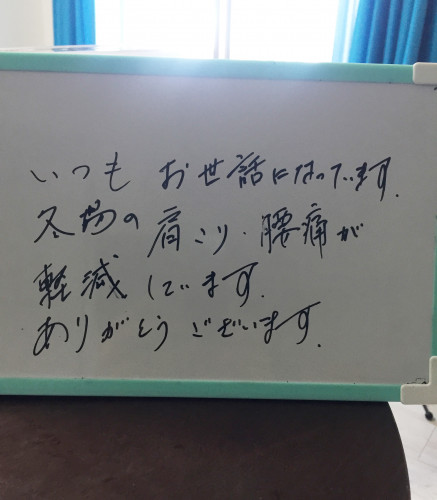 いつも お世話になってます.
冬場の 肩こり・腰痛が
軽減してます.
ありがとうございます.